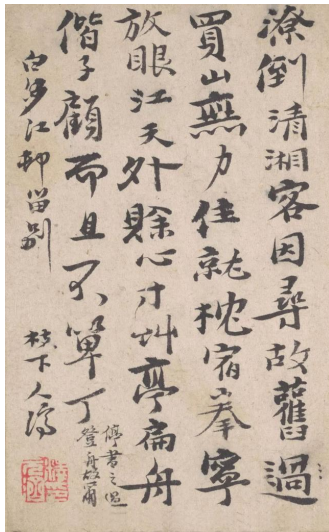 潦倒清湘客因尋故舊過
買山無力住就枕宿峯寧
放眼江天外賒心寸草亭扁舟
偕子顧而且不單丁
白多江邨留別
枝下人濟
停書之過
登舟故爾